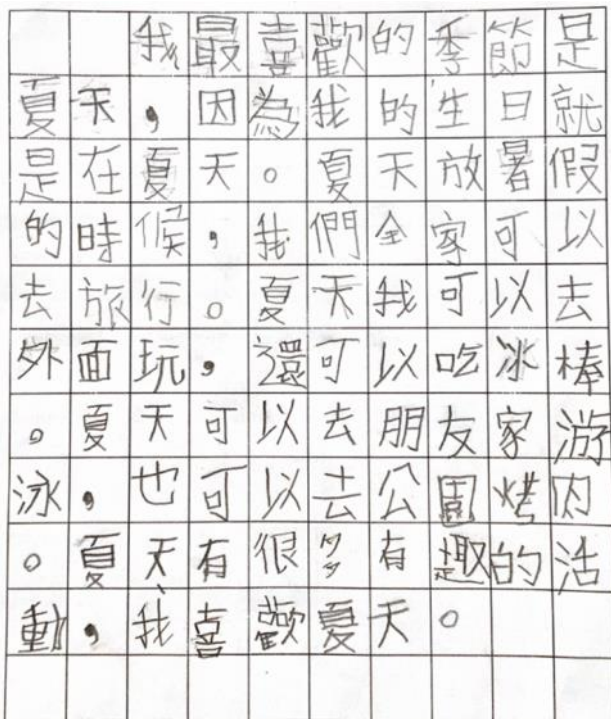 我最喜歡的季節是
夏天，因為我的生日就
是在夏天。夏天放暑假
的時候，我們全家可以
去旅行。夏天我可以去
外面玩，還可以吃冰棒
。夏天可以去朋友家游
泳，也可以去公園烤肉
。夏天有很多有趣的活
動，我喜歡夏天。